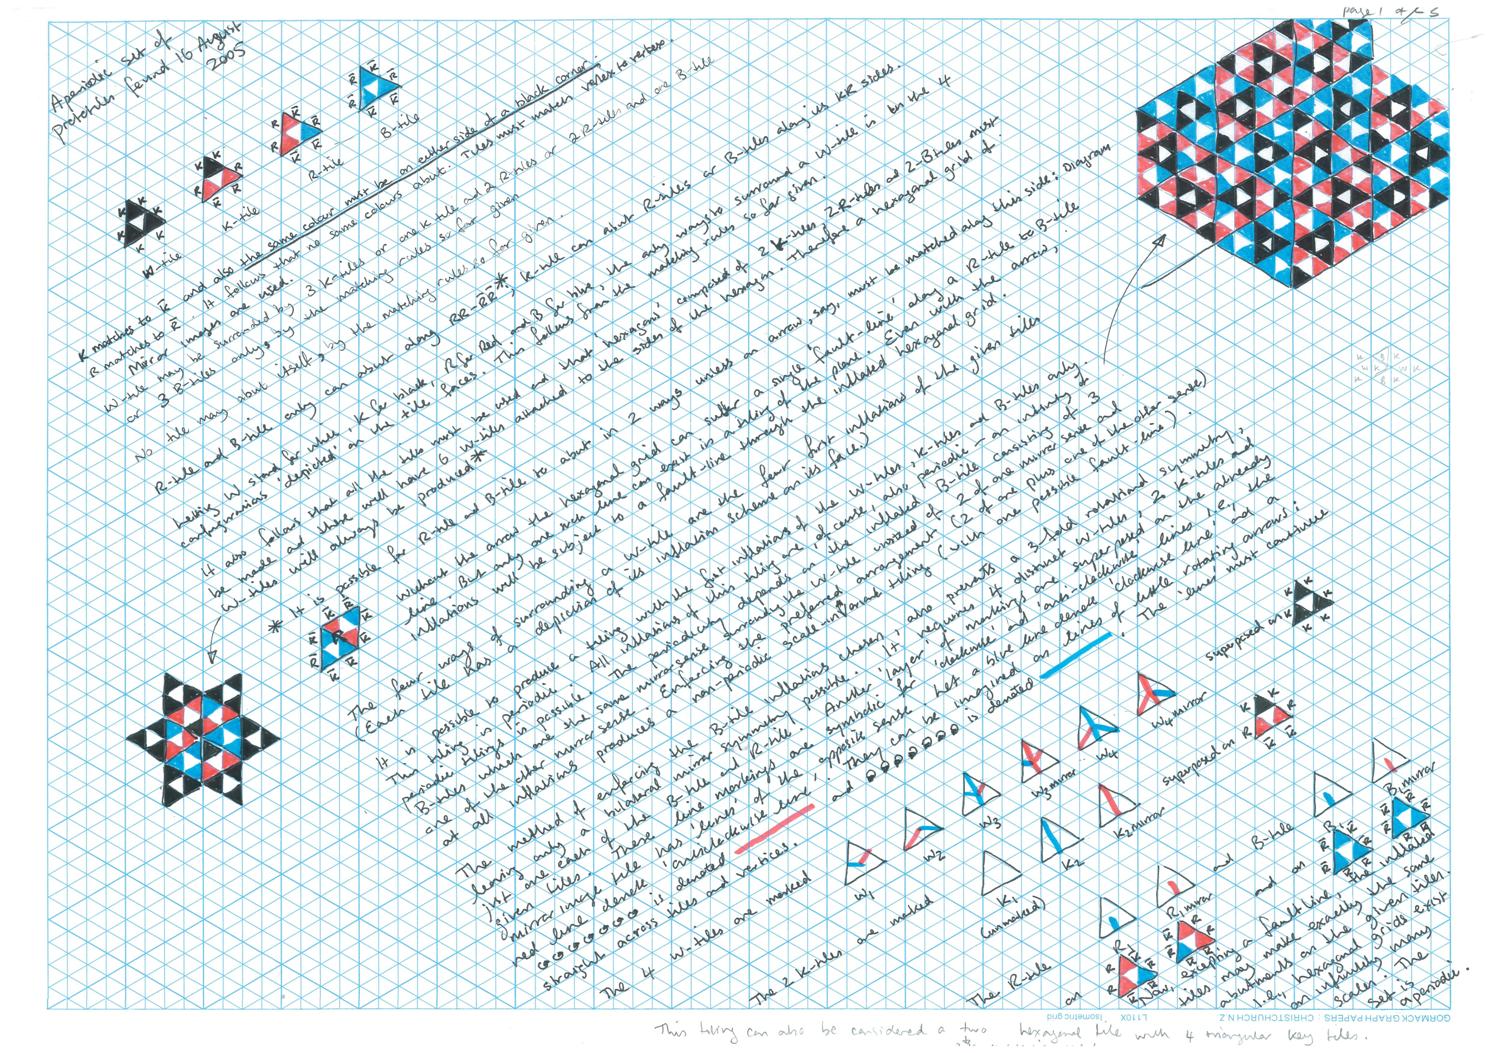 page 1 of 5
Aperiodic set of
prototiles found 16 August
2005
W-tile
K-tile
R-tile
B-tile
K matches to K̄ and also the same colour must be on either side of a black corner.
R matches to R̄. It follows that no same colours abut. Tiles must match vertex to vertex.
Mirror images are used.
W-tile may be surrounded by 3 K-tiles or one K-tile and 2 R-tiles or 2 R-tiles and one B-tile
or 3 B-tiles only, by the matching rules so far given
No tile may abut itself, by the matching rules so far given.
R-tile and B-tile only can abut along RR-R̄R̄*, K-tile can abut R-tiles or B-tiles along its KR sides.
Letting W stand for white, K for black, R for Red and B for blue, the only ways to surround a W-tile is by the 4
configurations 'depicted' on the tile faces. This follows from the matching rules so far given.
It also follows that all the tiles must be used and that 'hexagons' composed of 2 K-tiles 2 R-tiles and 2 B-tiles must
be made and these will have 6 W-tiles attached to the sides of the hexagon. Therefore a hexagonal grid of
W-tiles will always be produced*
* It is possible for R-tile and B-tile to abut in 2 ways unless an arrow, say, must be matched along this side: Diagram
Without the arrow the hexagonal grid can suffer a single 'fault-line' along a R-tile to B-tile
line. But only one such line can exist in a tiling of the plane. Even with the arrow,
inflations will be subject to a fault-line through the inflated hexagonal grid.
The four ways of surrounding a W-tile are the four first inflations of the given tiles
(Each tile has a depiction of its inflation scheme on its face.)
It is possible to produce a tiling with the first inflations of the W-tiles, K-tiles and B-tiles only.
This tiling is periodic. All inflations of this tiling are, of course, also periodic - an infinity of
periodic tilings is possible. The periodicity depends on the inflated B-tile consisting of 3
B-tiles which are the same mirror-sense surrounding the W-tile instead of 2 of one mirror sense and
one of the other mirror sense. Enforcing the preferred arrangement (2 of one plus one of the other sense)
at all inflations produces a non-periodic scale-invariant tiling (with one possible fault-line)
The method of enforcing the B-tile inflations chosen, also prevents a 3-fold rotational symmetry,
leaving only a bilateral mirror symmetry possible. It requires 4 distinct W-tiles, 2 K-tiles and
just one each of the B-tile and R-tile. Another 'layer' of markings are superposed on the already
given tiles. These line markings are symbolic for 'clockwise' and 'anti-clockwise' lines i.e., the
mirror image tile has 'lines' of the opposite sense. Let a blue line denote 'clockwise line' and a
red line denote 'anticlockwise line'. They can be imagined as lines of little rotating arrows:
is denoted and is denoted. The lines must continue
straight across tiles and vertices.
The 4 W-tiles are marked
W₁
W₂
W₃
W₃mirror
W₄
W₄mirror
superposed on
The 2 K-tiles are marked
K₁
(unmarked)
K₂
K₂mirror
superposed on
The R-tile
R₁
R₁mirror
on
and B-tile
B₁
B₁mirror
and on
Now, excepting a fault line, the inflated
tiles may make exactly the same
abutments as the given tiles.
I.e., hexagonal grids exist
on infinitely many
scales. The
set is
aperiodic.
GORMACK GRAPH PAPERS : CHRISTCHURCH N.Z L110X Isometric grid
This tiling can also be considered a two hexagonal tile with 4 triangular key tiles.